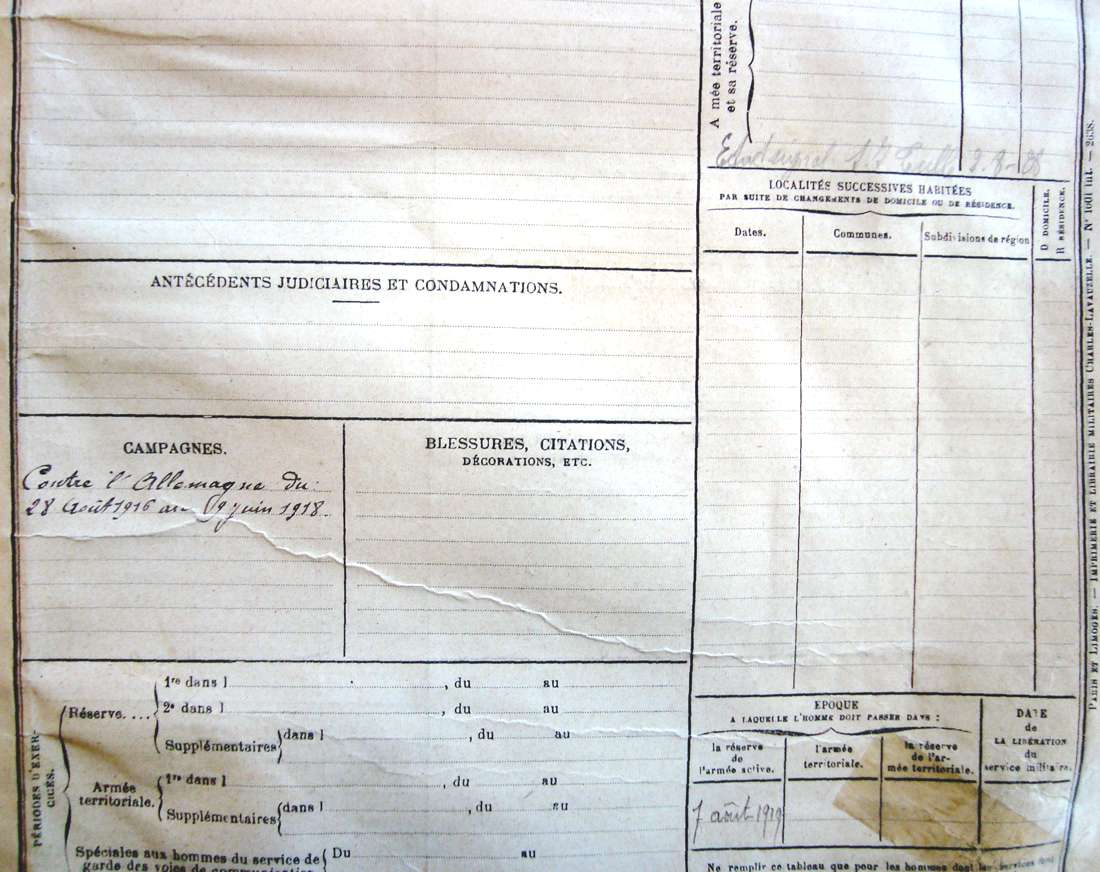 Armée territoriale
et sa réserve.
2-8-
LOCALITÉS SUCCESSIVES HABITÉES
PAR SUITE DE CHANGEMENTS DE DOMICILE OU DE RÉSIDENCE.
Dates.
Communes.
Subdivisions de région
D DOMICILE.
R RÉSIDENCE.
ANTÉCÉDENTS JUDICIAIRES ET CONDAMNATIONS.
CAMPAGNES.
Contre l'Allemagne du
28 Août 1916 au 9 juin 1918
BLESSURES, CITATIONS,
DÉCORATIONS, ETC.
PÉRIODES D'EXER-
CICES.
Réserve....
1re dans l , du au
2e dans l , du au
Supplémentaires dans l , du au
Armée
territoriale.
1re dans l , du au
Supplémentaires dans l , du au
Spéciales aux hommes du service de
garde des voies de communication
Du au
EPOQUE
A LAQUELLE L'HOMME DOIT PASSER DANS :
la réserve
de
l'armée active.
l'armée
territoriale.
la réserve
de l'ar-
mée territoriale.
DATE
de
LA LIBÉRATION
du
service militaire.
7 août 1919
Ne remplir ce tableau que pour les hommes dont les services
PARIS ET LIMOGES. — IMPRIMERIE ET LIBRAIRIE MILITAIRES CHARLES-LAVAUZELLE. — N° 1601 int. — 2638.